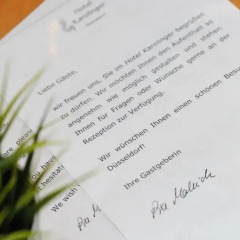 Hotel
Karsinger
Liebe Gäste,
wir freuen uns, Sie im Hotel Karsinger begrüßen
zu dürfen. Wir möchten Ihnen den Aufenthalt so
angenehm wie möglich gestalten und stehen
Ihnen für Fragen oder Wünsche gerne an der
Rezeption zur Verfügung.
Wir wünschen Ihnen einen schönen Besu
Düsseldorf!
Ihre Gastgeberin
We wish